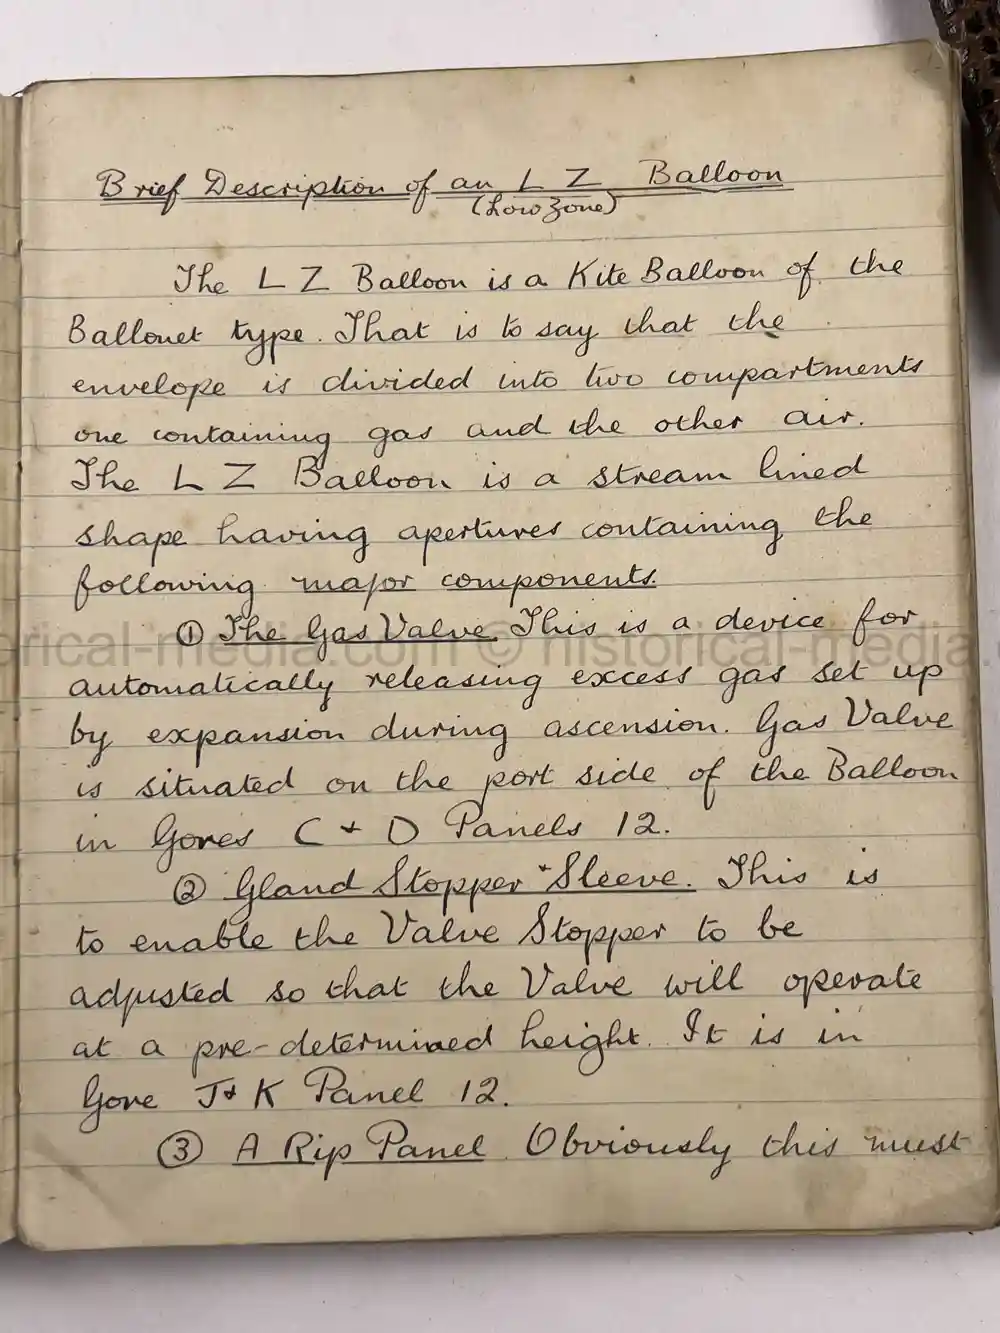 Brief Description of an L Z Balloon
(Low Zone)
The L Z Balloon is a Kite Balloon of the
Ballonet type. That is to say that the
envelope is divided into two compartments
one containing gas and the other air.
The L Z Balloon is a stream lined
shape having apertures containing the
following major components.
① The Gas Valve. This is a device for
historical-media.com © historical-media.
automatically releasing excess gas set up
by expansion during ascension. Gas Valve
is situated on the port side of the Balloon
in Gores C + D Panels 12.
② Gland Stopper + Sleeve. This is
to enable the Valve Stopper to be
adjusted so that the Valve will operate
at a pre-determined height. It is in
Gore J + K Panel 12.
③ A Rip Panel. Obviously this must